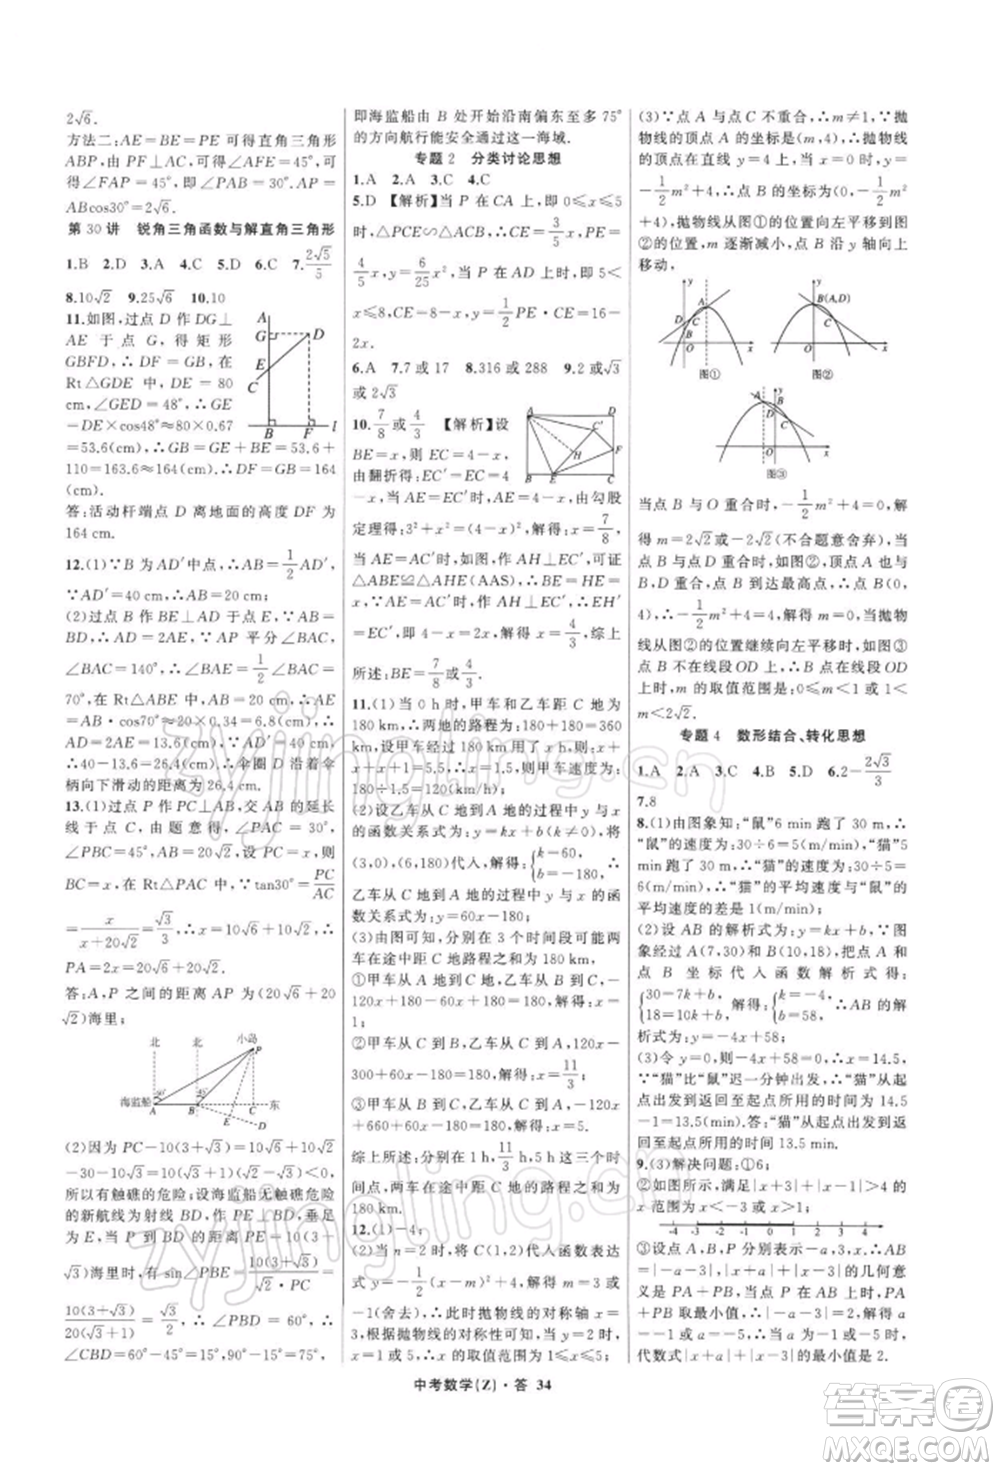 2√6.
方法二:AE=BE=PE 可得直角三角形
ABP,由 PF⊥AC,可得∠AFE=45°,进
得∠FAP=45°,即∠PAB=30°.AP=
ABcos30°=2√6.
第 30 讲 锐角三角函数与解直角三角形
1.B 2.D 3.A 4.C 5.D 6.C 7.2√5/5
8.10√2 9.25√6 10.10
11.如图,过点 D 作 DG⊥
AE 于点 G,得矩形
GBFD,∴DF=GB,在
Rt△GDE 中,DE=80
cm,∠GED=48°,∴GE
=DEcos48°≈80×0.67
=53.6(cm),∴GB=GE+BE=53.6+
110=163.6≈164(cm).∴DF=GB=164
(cm).
答:活动杆端点 D 离地面的高度 DF 为
164 cm.
12.(1)∵B 为 AD′中点,∴AB=1/2AD′,
∵AD′=40 cm,∴AB=20 cm;
(2)过点 B 作 BE⊥AD 于点 E,∵AB=
BD,∴AD=2AE,∵AP 平分∠BAC,
∠BAC=140°,∴∠BAE=1/2∠BAC=
70°,在 Rt△ABE 中,AB=20 cm,∴AE
=AB·cos70°≈20×0.34=6.8(cm),∴
AD=2AE=13.6(cm),∵AD′=40(cm),
∴40-13.6=26.4(cm).∴伞圈 D 沿着伞
柄向下滑动的距离为 26.4 cm.
13.(1)过点 P 作 PC⊥AB 交 AB 的延长
线于点 C,由题意得,∠PAC=30°,
∠PBC=45°,AB=20√2,设 PC=x,则
BC=x,在 Rt△PAC 中,∵tan30°=PC/AC
=x/(x+20√2)=√3/3,∴x=10√6+10√2,∴
PA=2x=20√6+20√2.
答:A,P 之间的距离 AP 为(20√6+20
√2)海里;
北 北 小岛
P
海监船 A B C 东
D
(2)因为 PC-10(3+√3)=10√6+10√2
-30-10√3=10(√3+1)(√2-√3)<0,所以
有触礁的危险;设海监船无触礁危险
的新航线为射线 BD,作 PE⊥BD,垂足
为 E,当 P 到 BD 的距离 PE=10(3+
√3)海里时,有 sin∠PBE=10(3+√3)/(√2·PC)=
10(3+√3)/(20(√3+1))=√3/2,∴∠PBD=60°,∴
∠CBD=60°-45°=15°,90°-15°=75°.
即海监船由 B 处开始沿南偏东至多 75°
的方向航行能安全通过这一海域.
专题 2 分类讨论思想
1.A 2.A 3.C 4.C
5.D 【解析】当 P 在 CA 上时,即 0≤x≤5
时,△PCE∽△ACB,∴CE=3/5x,PE=
4/5x,y=6/25x²;当 P 在 AD 上时,即 5≤
x≤8,CE=8-x,y=1/2PE·CE=16-
2x.
6.A 7.7 或 17 8.316 或 288 9.2 或√3
或 2√3
10.7/8或4/3 【解析】设
BE=x,则 EC=4-x,
由翻折得:EC′=EC=4
-x,当 AE=EC′时,AE=4-x,由勾股
定理得:3²+x²=(4-x)²,解得:x=7/8,
当 AE=AC′时,如图,作 AH⊥EC′,可证
△ABE≌△AHE(AAS),∴BE=HE=
x,由 AE=AC′,作 AH⊥EC′,∴EH=1/2EC′
=EC′,即 4-x=2x,解得:x=4/3,综上
所述:BE=7/8或4/3.
11.(1)当 0 h 时,甲车和乙车距 C 地为
180 km,∴两地的路程为:180+180=360
km,设甲车用了 x h 到 C 地,则乙车用了
x h,即 x+1+x=5.5,则甲车速度为:
180÷1.5=120(km/h);
(2)设乙车从 C 地到 A 地的过程中 y 与 x
的函数关系式为:y=kx+b(k≠0),将
(3,0),(6,180)代入,解得:{k=60, b=-180,
乙车从 C 地到 A 地的过程中 y 与 x 的函
数关系式为:y=60x-180;
(3)由图可知,分别在 3 个时间段可能两
车在途中距 C 地路程之和为 180 km,
①甲车从 A 地到 C 地,乙车从 B 地到 C
地:180-120x+180-60x=180,解得:x=
1;
②甲车从 C 地到 B 地,乙车从 C 地到 A 地:120x
-300+60x-180=180,解得:x=11/3;
③甲车从 B 地到 C 地,乙车从 C 地到 A 地:-120x
+660+60x-180=180,解得:x=5;
综上所述,分别在 1 h,11/3 h,5 h 这三个时
间点,两车在途中距 C 地的路程之和为
180 km.
12.(1)-4;
(2)当 n=2 时,将 C(1,2)代入函数表达
式 y=4/m²x²-4/mx-2,解得 m=2 或 m=
-1(舍去);∴此时抛物线的对称轴 x=
1,根据抛物线的对称性可知,当 y≤2 时,
x 的取值范围为 -1≤x≤3.
(3)∵点 A 与点 C 不重合,∴m≠1,∵抛
物线的顶点 A 的坐标是(m,4),∴抛物线
的顶点在直线 y=4 上,当 x=0 时,y=
-1/2m²+4,∴点 B 的坐标为(0,-1/2m²
+4),抛物线从图①的位置向左平移到图
②的位置,m 逐渐减小,点 B 沿 y 轴向上
移动,
图①
图②
图③
当点 B 与 O 重合时,-1/2m²+4=0,解
得 m=2√2或-2√2(不合题意舍弃),当
点 B 与点 D 重合时,如图②,顶点 A 也与
点 B,D 重合,点 B 达到最高点,∴点 B(0,
4),∴-1/2m²+4=4,解得 m=0,当抛物
线从图②的位置继续向左平移时,如图③
点 B 不在线段 OD 上,∴B 点在线段 OD
上时,m 的取值范围是:0≤m<1 或 1<
m≤2√2.
专题 4 数形结合、转化思想
1.A 2.A 3.C 4.B 5.D 6.2-2√3/3
7.8
8.(1)由图象知:“鼠”6 min 跑了 30 m,
∴“鼠”的速度为:30÷6=5(m/min),
“猫”5 min 跑了 30 m,∴“猫”的速度为:30÷5=
6(m/min),∴“猫”的平均速度与“鼠”的
平均速度的差是 1 m/min;
(2)设 AB 的解析式为:y=kx+b,∵图
象经过 A(7,30)和 B(10,18),把点 A 和
点 B 坐标代入函数解析式得:
{30=7k+b, 18=10k+b, 解得:{k=-4, b=58, ∴AB 的解
析式为:y=-4x+58;
(3)令 y=0,则-4x+58=0,∴x=14.5,
∵“猫”比“鼠”迟一分钟出发,∴“猫”从起
点出发到返回至起点所用的时间为 14.5
-1=13.5(min).答:“猫”从起点出发到返
回至起点所用的时间 13.5 min.
9.(3)解决问题:①6;
②如图所示,满足|x+3|+|x-1|>4 的
x 范围为 x<-3 或 x>1;
-4 -3 -2 -1 0 1 2 3 4
③设点 A,B,P 分别表示-a,3,x,∴
|x+a|+|x-3|=PA+PB.∴由几何意
义是 PA+PB 的最小值为|-a-3|,∴PA
+PB 取最小值,∴|-a-3|=2,解得 a=
-1 或 a=-5,∴当 a 为-1 或-5 时,
代数式|x+a|+|x-3|的最小值是 2.
中考数学(Z)·答 34
zyjingling.cn
zyjingling.cn
答案圈
MXQE.COM